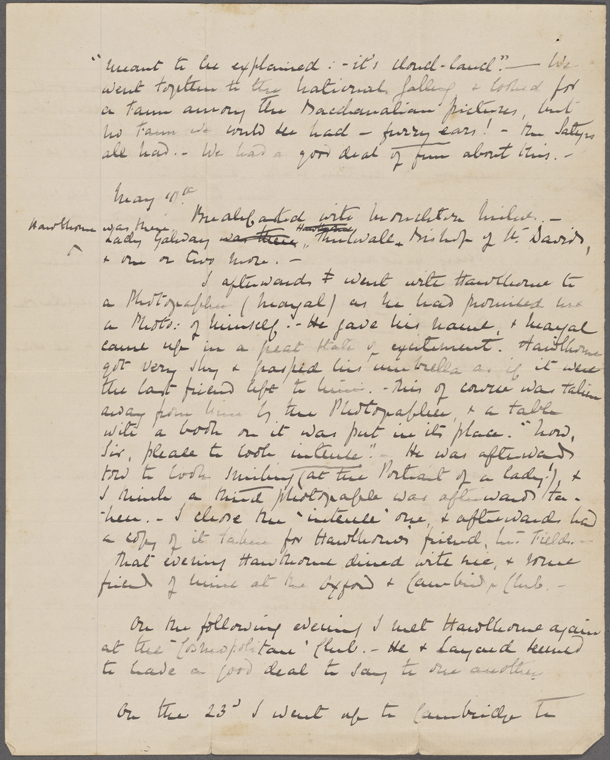 "meant to be explained: - it's cloud-land" — We
went together to the National Gallery & looked for
a Faun among the Bacchanalian pictures, but
no Faun we could see had - furry ears! - The Satyrs
all had. - We had a good deal of fun about this. -
May
Breakfasted with Monckton Milnes. -
Hawthorne was there
Lady Galway was there, Hawthorne Thirlwall - Bishop of St. Davids,
& one or two more. -
I afterwards went with Hawthorne to
a Photographer (Mayal) as he had promised me
a Photo: of himself. - He gave his name, & Mayal
came up in a great state of excitement. Hawthorne
got very shy & grasped his umbrella as if it were
the last friend left to him. - This of course was taken
away from him by the Photographer, & a table
with a book on it was put in its place. - "Now,
Sir, please to look intense"! - He was afterwards
told to look smiling (at the Portrait of a lady!), &
I think a third photograph was afterwards ta-
-ken. - I chose the 'intense' one, & afterwards had
a copy of it taken for Hawthorne's friend, Mr Fields -
That evening Hawthorne dined with me, & some
friend of mine at the Oxford & Cambridge Club. -
On the following evening I met Hawthorne again
at the 'Cosmopolitan' Club. - He & Layard seemed
to have a good deal to say to one another
On the 23d I went up to Cambridge to